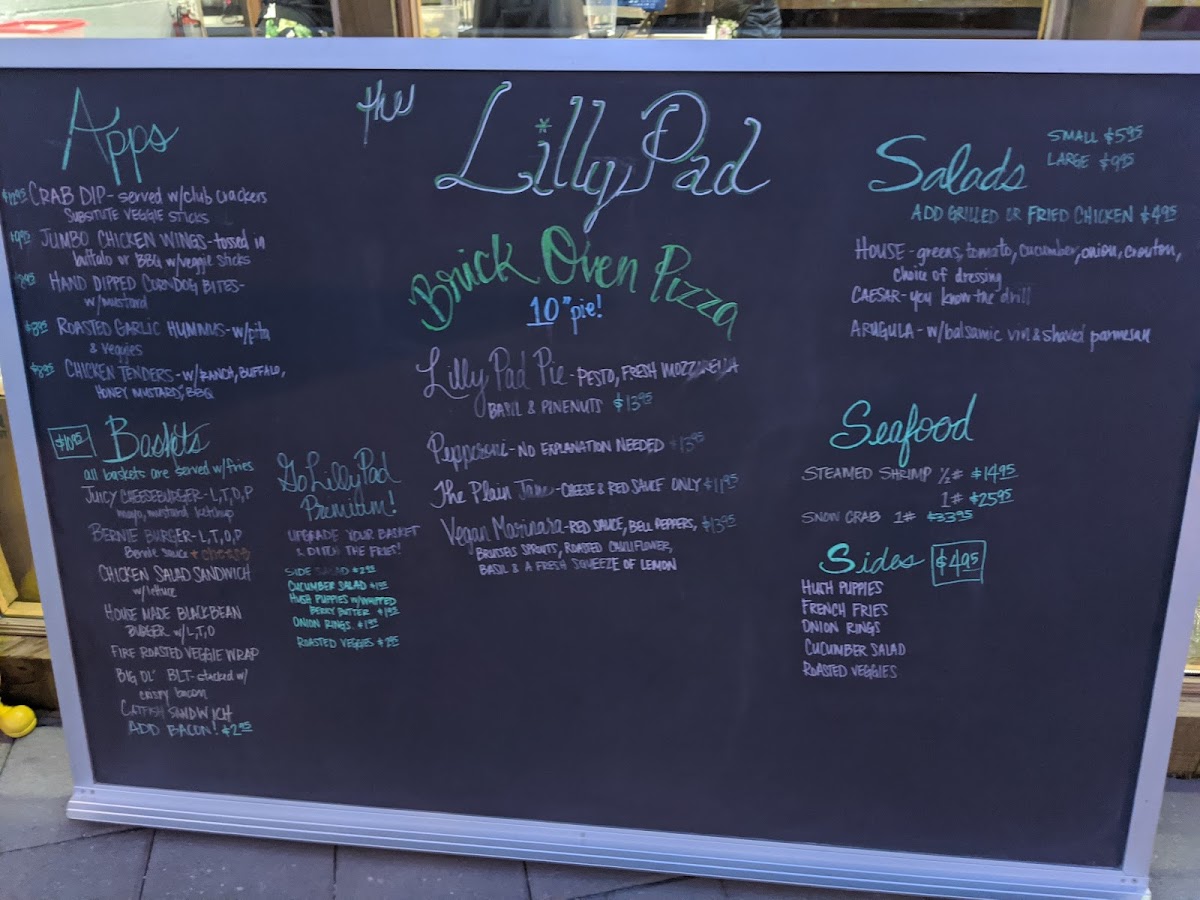 the Lilly Pad
Brick Oven Pizza
10" pie!
Lilly Pad Pie - PESTO, FRESH MOZZARELLA
BASIL & PINENUTS $13.95
Pepperoni - NO EXPLANATION NEEDED $13.95
The Plain Jane - CHEESE & RED SAUCE ONLY $11.95
Vegan Marinara - RED SAUCE, BELL PEPPERS, $13.95
BRUSSELS SPROUTS, ROASTED CAULIFLOWER,
BASIL & A FRESH SQUEEZE OF LEMON
Apps
CRAB DIP - served w/club crackers
SUBSITUTE VEGGIE STICKS
JUMBO CHICKEN WINGS - tossed in
buffalo or BBQ w/veggie sticks
HAND DIPPED CORNDOG BITES -
w/mustard
$8.95 ROASTED GARLIC HUMMUS - w/pita
& veggies
$8.95 CHICKEN TENDERS - W/RANCH, BUFFALO,
HONEY MUSTARD, BBQ
$10.95 Baskets
all baskets are served w/fries
JUICY CHEESEBURGER - L,T,O,P
mayo, mustard, ketchup
BERNIE BURGER - L,T,O,P
Bernie Sauce + cheese
CHICKEN SALAD SANDWICH
w/lettuce
HOUSE MADE BLACK BEAN
BURGER w/L,T,O
FIRE ROASTED VEGGIE WRAP
BIG OL' BLT - stacked w/
crispy bacon
CATFISH SANDWICH
ADD BACON! $2.95
Go Lilly Pad
Premium!
UPGRADE YOUR BASKET
& DITCH THE FRIES!
SIDE SALAD $2.95
CUCUMBER SALAD $1.95
HUSH PUPPIES W/WHIPPED
BERRY BUTTER $1.95
ONION RINGS $1.95
ROASTED VEGGIES $2.95
Salads
SMALL $5.95
LARGE $9.95
ADD GRILLED OR FRIED CHICKEN $4.95
HOUSE - greens, tomato, cucumber, onion, crouton,
choice of dressing
CAESAR - you know the drill
ARUGULA - w/balsamic vin & shaved parmesan
Seafood
STEAMED SHRIMP 1/2# $14.95
1# $25.95
SNOW CRAB 1# $33.95
Sides $4.95
HUSH PUPPIES
FRENCH FRIES
ONION RINGS
CUCUMBER SALAD
ROASTED VEGGIES